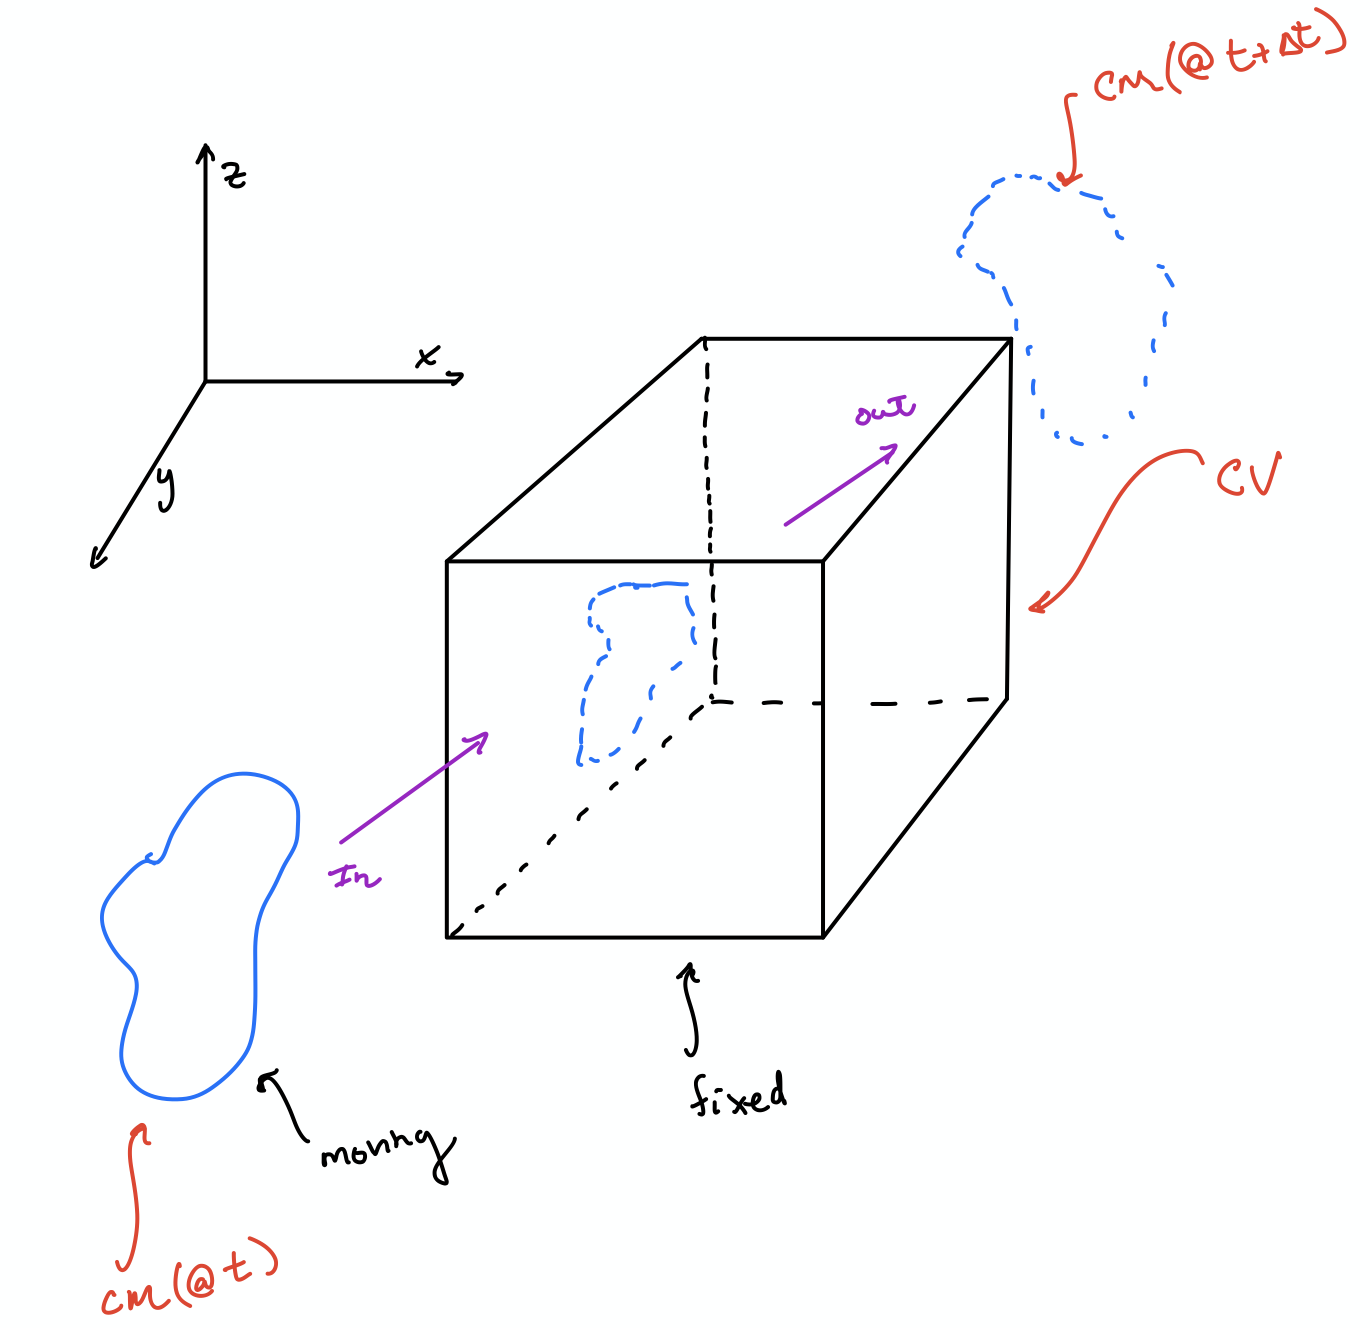 cm(@ t+Δt)
z
x
y
out
CV
In
fixed
moving
cm(@ t)